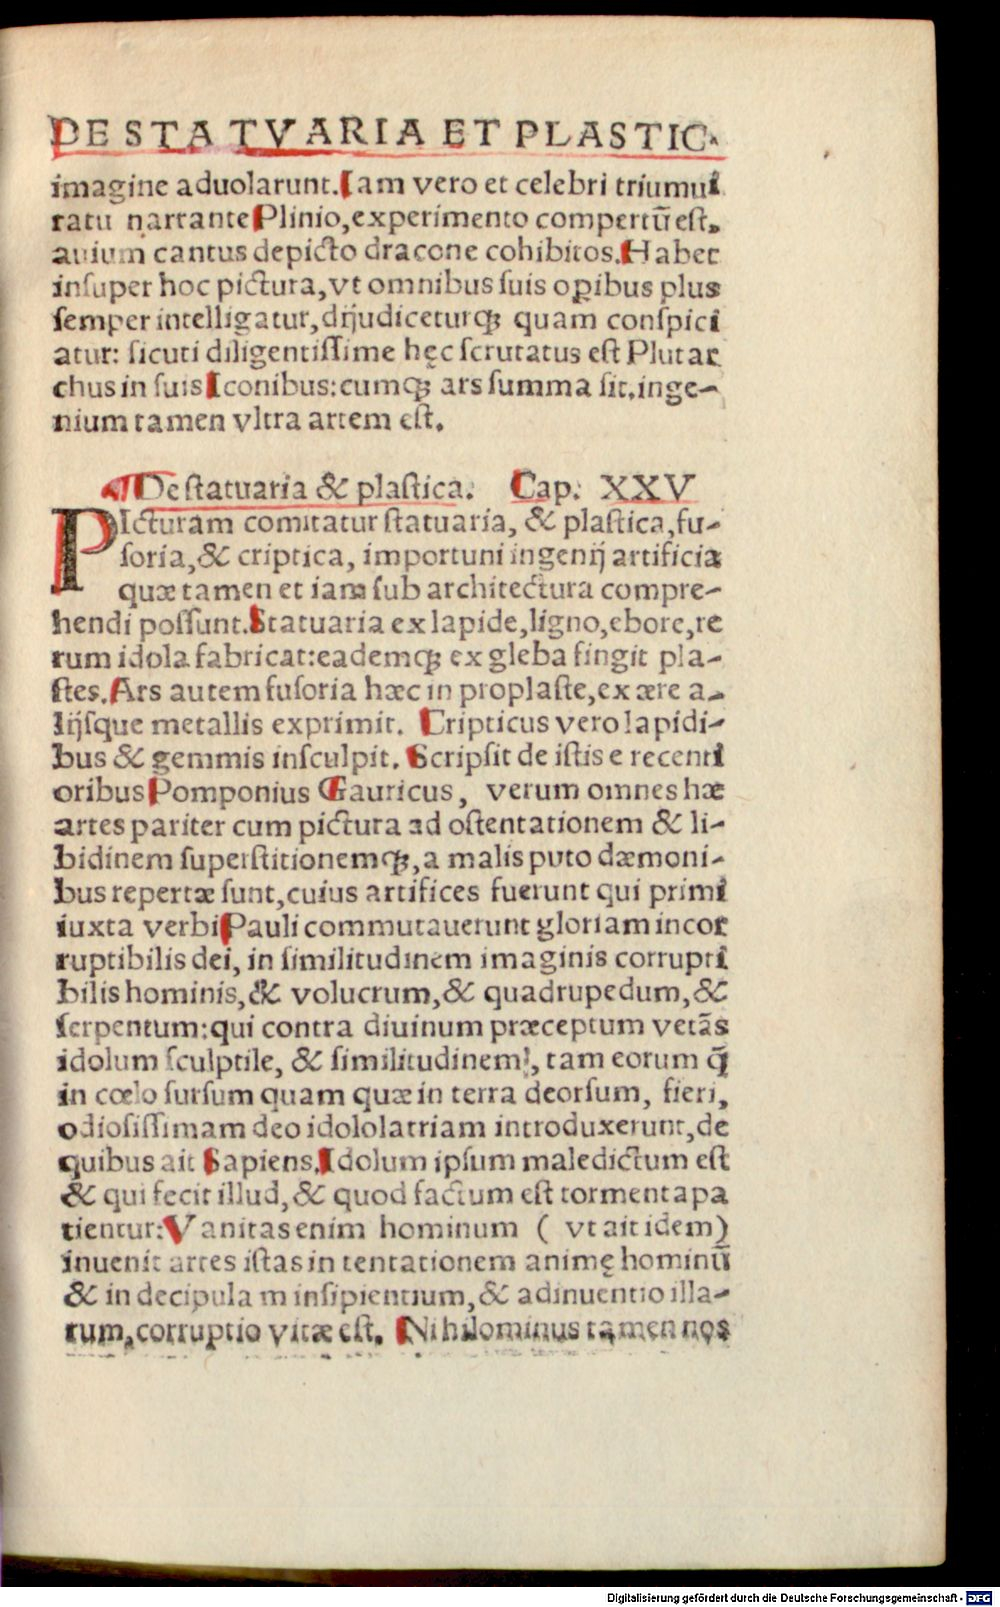 DE STATVARIA ET PLASTIC.
imagine aduolarunt. Iam vero et celebri triumui
ratu narrante Plinio, experimento compertū est,
auium cantus depicto dracone cohibitos. Habet
insuper hoc pictura, vt omnibus suis opibus plus
semper intelligatur, dijudiceturqꝫ quam conspici
atur: sicuti diligentissime hęc scrutatus est Plutar
chus in suis Iconibus: cumqꝫ ars summa sit, inge-
nium tamen vltra artem est.
¶ De statuaria & plastica. Cap. XXV
PIcturam comitatur statuaria, & plastica, fu-
soria, & criptica, importuni ingenij artificia
quæ tamen et iam sub architectura compre-
hendi possunt. Statuaria ex lapide, ligno, ebore, re
rum idola fabricat: eademqꝫ ex gleba fingit pla-
stes. Ars autem fusoria hæc in proplaste, ex ære a-
lijsque metallis exprimit. Cripticus vero lapidi-
bus & gemmis insculpit. Scripsit de istis e recenti
oribus Pomponius Gauricus, verum omnes hæ
artes pariter cum pictura ad ostentationem & li-
bidinem superstitionemqꝫ, a malis puto dæmoni-
bus repertæ sunt, cuius artifices fuerunt qui primi
iuxta verbi Pauli commutauerunt gloriam incor
ruptibilis dei, in similitudinem imaginis corrupti
bilis hominis, & volucrum, & quadrupedum, &
serpentum: qui contra diuinum præceptum vetās
idolum sculptile, & similitudinem, tam eorum q̄
in cœlo sursum quam quæ in terra deorsum, fieri,
odiosissimam deo idololatriam introduxerunt, de
quibus ait Sapiens. Idolum ipsum maledictum est
& qui fecit illud, & quod factum est tormenta pa
tientur: Vanitas enim hominum ( vt ait idem)
inuenit artes istas in tentationem animę hominū
& in decipulam insipientium, & adinuentio illa-
rum, corruptio vitæ est. Nihilominus tamen nos
Digitalisierung gefördert durch die Deutsche Forschungsgemeinschaft - DFG